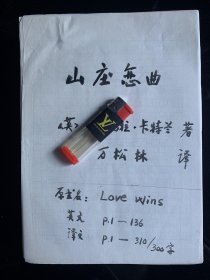 山庄恋曲
(英) 拉·卡特兰 著
万松林 译
原书名: Love Wins
英文 p.1—136
译文 p.1—310/300字
LV